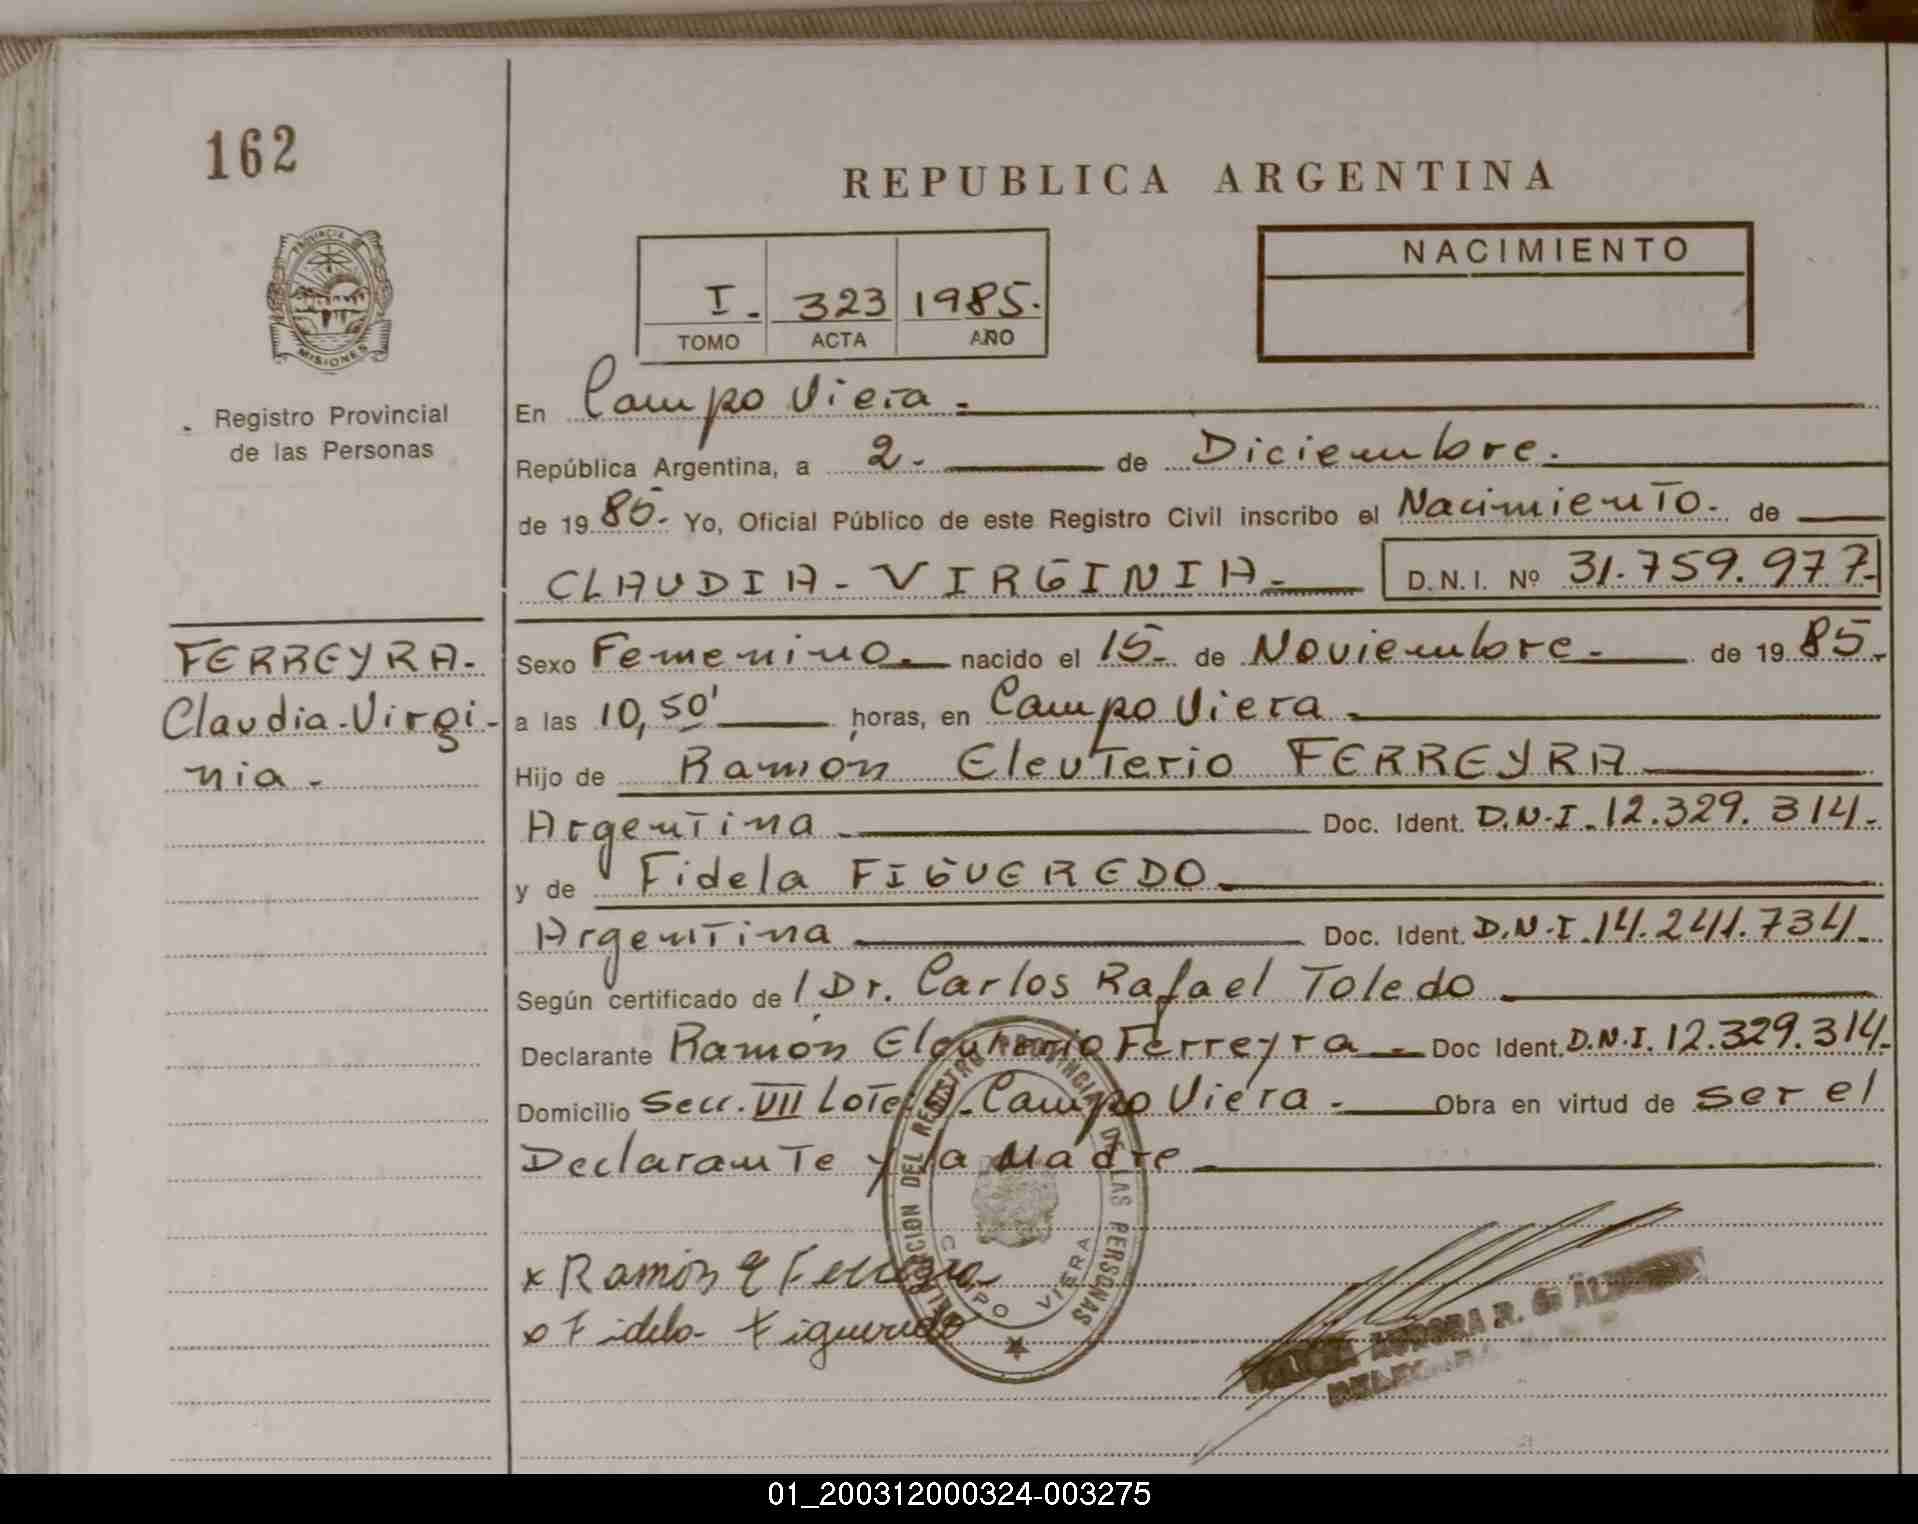 162
REPUBLICA ARGENTINA
PROVINCIA DE
MISIONES
Registro Provincial
de las Personas
I. 323 1985.
TOMO ACTA AÑO
NACIMIENTO
En Campo Viera.
República Argentina, a 2. de Diciembre.
de 1985. Yo, Oficial Público de este Registro Civil inscribo el Nacimiento. de
CLAUDIA - VIRGINIA. D.N.I. Nº 31.759.977.
FERREYRA.
Claudia Virgi-
nia.
Sexo Femenino. nacido el 15. de Noviembre. de 1985.
a las 10,50' horas, en Campo Viera.
Hijo de Ramón Eleuterio FERREYRA
Argentina Doc. Ident. D.N.I. 12.329.314.
y de Fidela FIGUEREDO
Argentina Doc. Ident. D.N.I. 14.241.734.
Según certificado de / Dr. Carlos Rafael Toledo
Declarante Ramón Eleuterio Ferreyra Doc Ident. D.N.I. 12.329.314.
Domicilio Secc. VII Lote Campo Viera. Obra en virtud de ser el
Declarante y la Madre
x Ramón E Ferreyra
x Fidela Figueredo
DEL REGISTRO PROVINCIAL DE LAS PERSONAS
CAMPO VIERA
AURORA R.
01_200312000324-003275